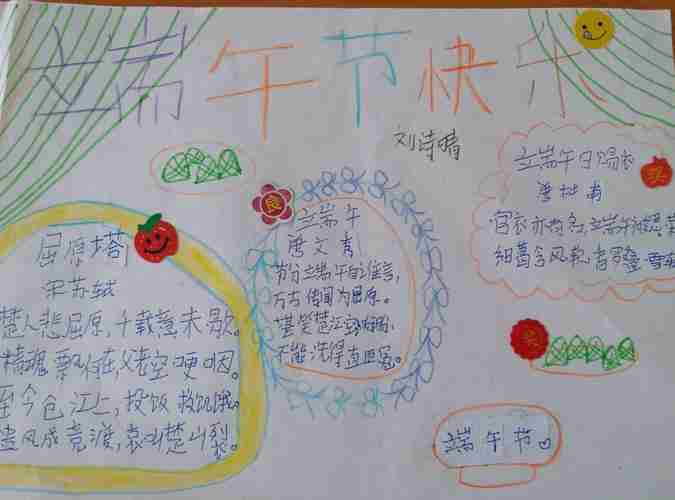 端午节快乐
刘诗晴
端午日赐衣
唐杜甫
宫衣亦有名,端午被恩荣
细葛含风软,香罗叠雪
屈原塔
宋苏轼
楚人悲屈原,千载意未歇。
精魂飘何在,父老空哽咽。
至今仓江上,投饭救饥渴。
遗风成竞渡,哀叫楚山裂。
端午
唐文秀
节分端午自谁言,
万古传闻为屈原。
堪笑楚江空渺渺,
不能洗得直臣冤。
良
端午节